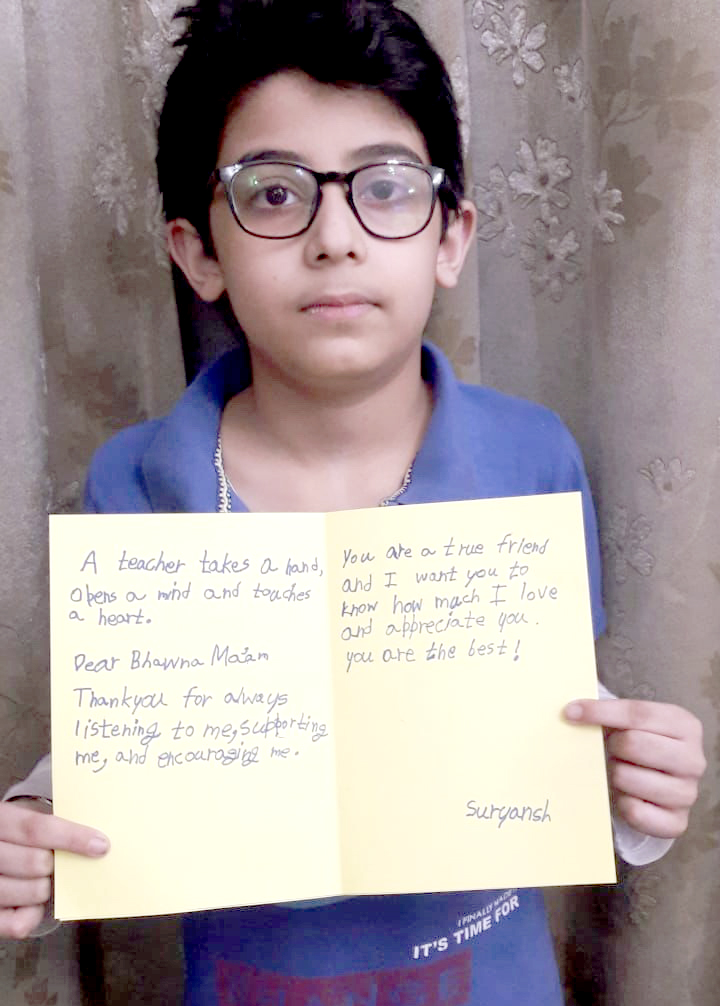 A teacher takes a hand,
opens a mind and touches
a heart.
Dear Bhawna Ma'am
Thankyou for always
listening to me, supporting
me, and encouraging me.
You are a true friend
and I want you to
know how much I love
and appreciate you.
you are the best!
Suryansh
I FINALLY MADE
IT'S TIME FOR